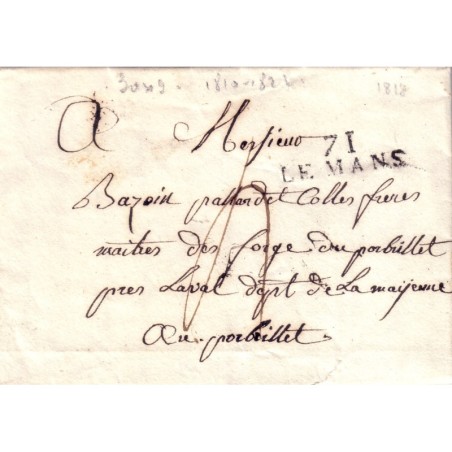 1810-182
1818
A Monsieur
71
LE MANS
Bazoin paillardet Colles freres
maitres des forge du porbrillet
pres Laval dept de La mayenne
Au porbrillet